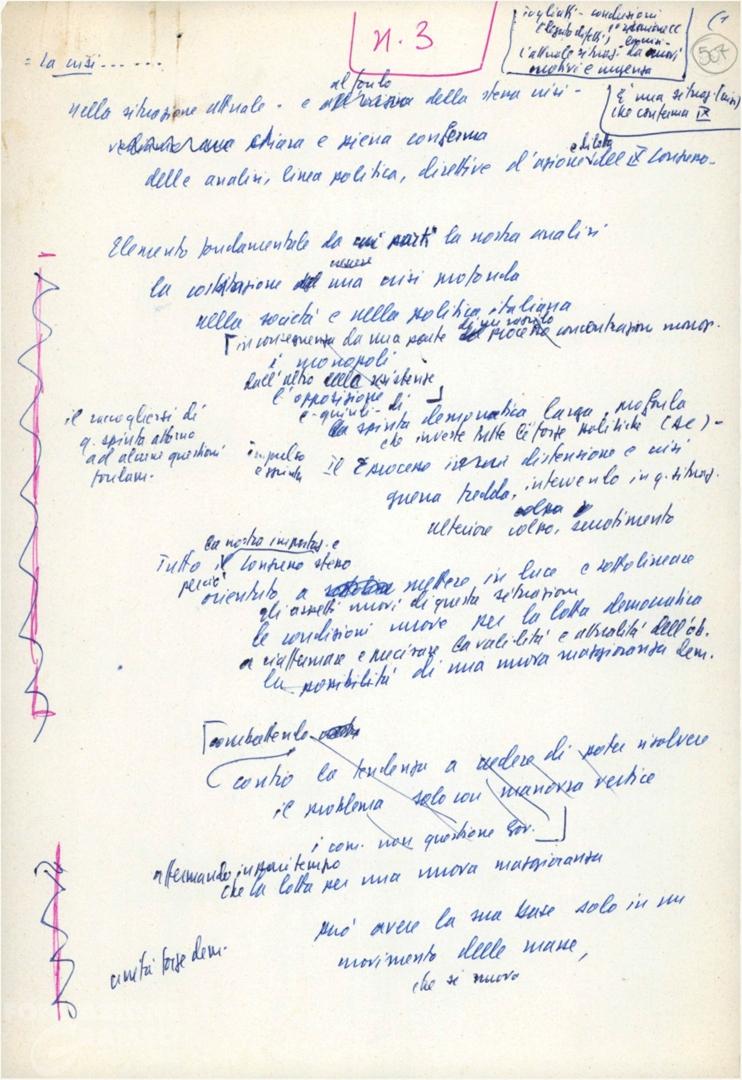 n. 3
(1
507
Togliatti - conclusioni
l'attuale situaz. da nuovi
motivi e urgenza
È una situaz. (crisi)
che conferma IX
= la crisi . . . . .
al fondo
nella situazione attuale - e della stessa crisi -
chiara e piena conferma
delle analisi, linea politica, direttive d'azione e di lotta del IX Congresso -
Elemento fondamentale da cui partì la nostra analisi
la constatazione una crisi profonda
nella società e nella politica italiana
[in conseguenza da una parte di un processo concentrazione monop.
i monopoli
dall'altro resistenze
l'opposizione ]
e - quindi - di
la spinta democratica larga, profonda
che investe tutte le forze politiche (DC) -
il raccogliersi di
q. spinta attorno
ad alcune questioni
fondam.
impulso
e spinta
Il processo distensione e crisi
guerra fredda, intervento in q. situaz.
ulteriore colpo,
la nostra impostaz. e
Tutto il congresso stesso
perciò
orientato a mettere in luce e sottolineare
gli aspetti nuovi di questa situazione
le condizioni nuove per la lotta democratica
a riaffermare e precisare la validità e attualità dell'ob.
la possibilità di una nuova maggioranza dem.
[combattendo
contro la tendenza a vedere di poter risolvere
il problema solo con manovra vertice
i com. non questione gov. ]
affermando in pari tempo
che la lotta per una nuova maggioranza
può avere la sua base solo in un
movimento delle masse,
che si muova
unità forze dem.